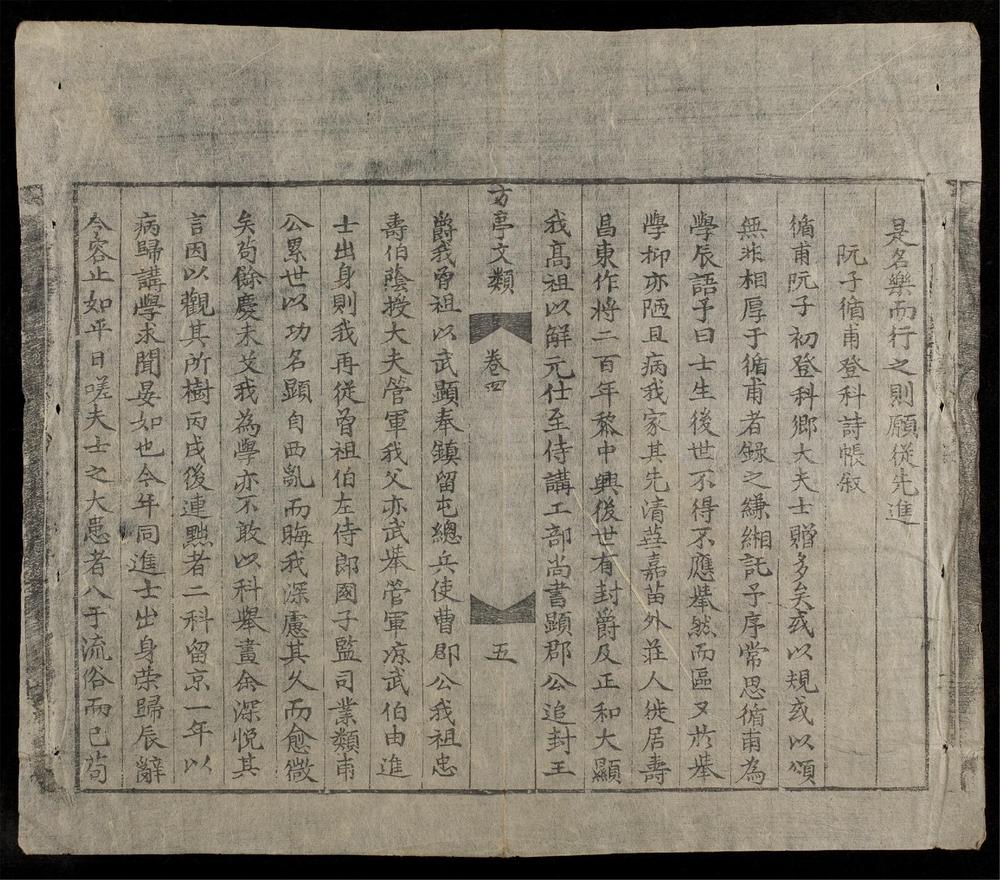 是名樂而行之則願從先進
阮子循甫登科詩帳叙
循甫阮子初登科鄉大夫士贈多矣或以規或以頌
無非相厚于循甫者錄之縑緗託予序常思循甫為
學辰語予曰士生後世不得不應舉然而區又於舉
學抑亦陋且病我家其先清華嘉苗外莊人徙居壽
昌東作將二百年黎中興後世有封爵及正和大顯
我高祖以解元仕至侍講工部尚書顯郡公追封王
方亭文類
卷四
五
爵我曾祖以武顯奉鎮留屯總兵使曹郡公我祖忠
壽伯蔭授大夫管軍我父亦武舉管軍武伯由進
士出身則我再從曾祖伯左侍郎國子監司業類甫
公累世以功名顯自西亂而晦我深慮其久而愈微
矣苟餘慶未艾我為學亦不敢以科舉畫余深悦其
言因以觀其所樹丙戌後連黜者二科留京一年以
病歸講學求聞晏如也今年同進士出身荣歸辰辭
令容止如平日嗟夫士之大患者八于流俗而已苟